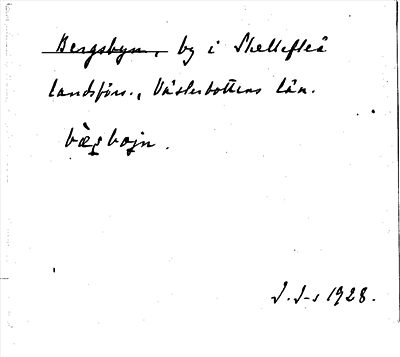 Bergsbyn, by i Skellefteå
landsförs., Västerbottens län.
bægbojn.
J. J-s 1928.